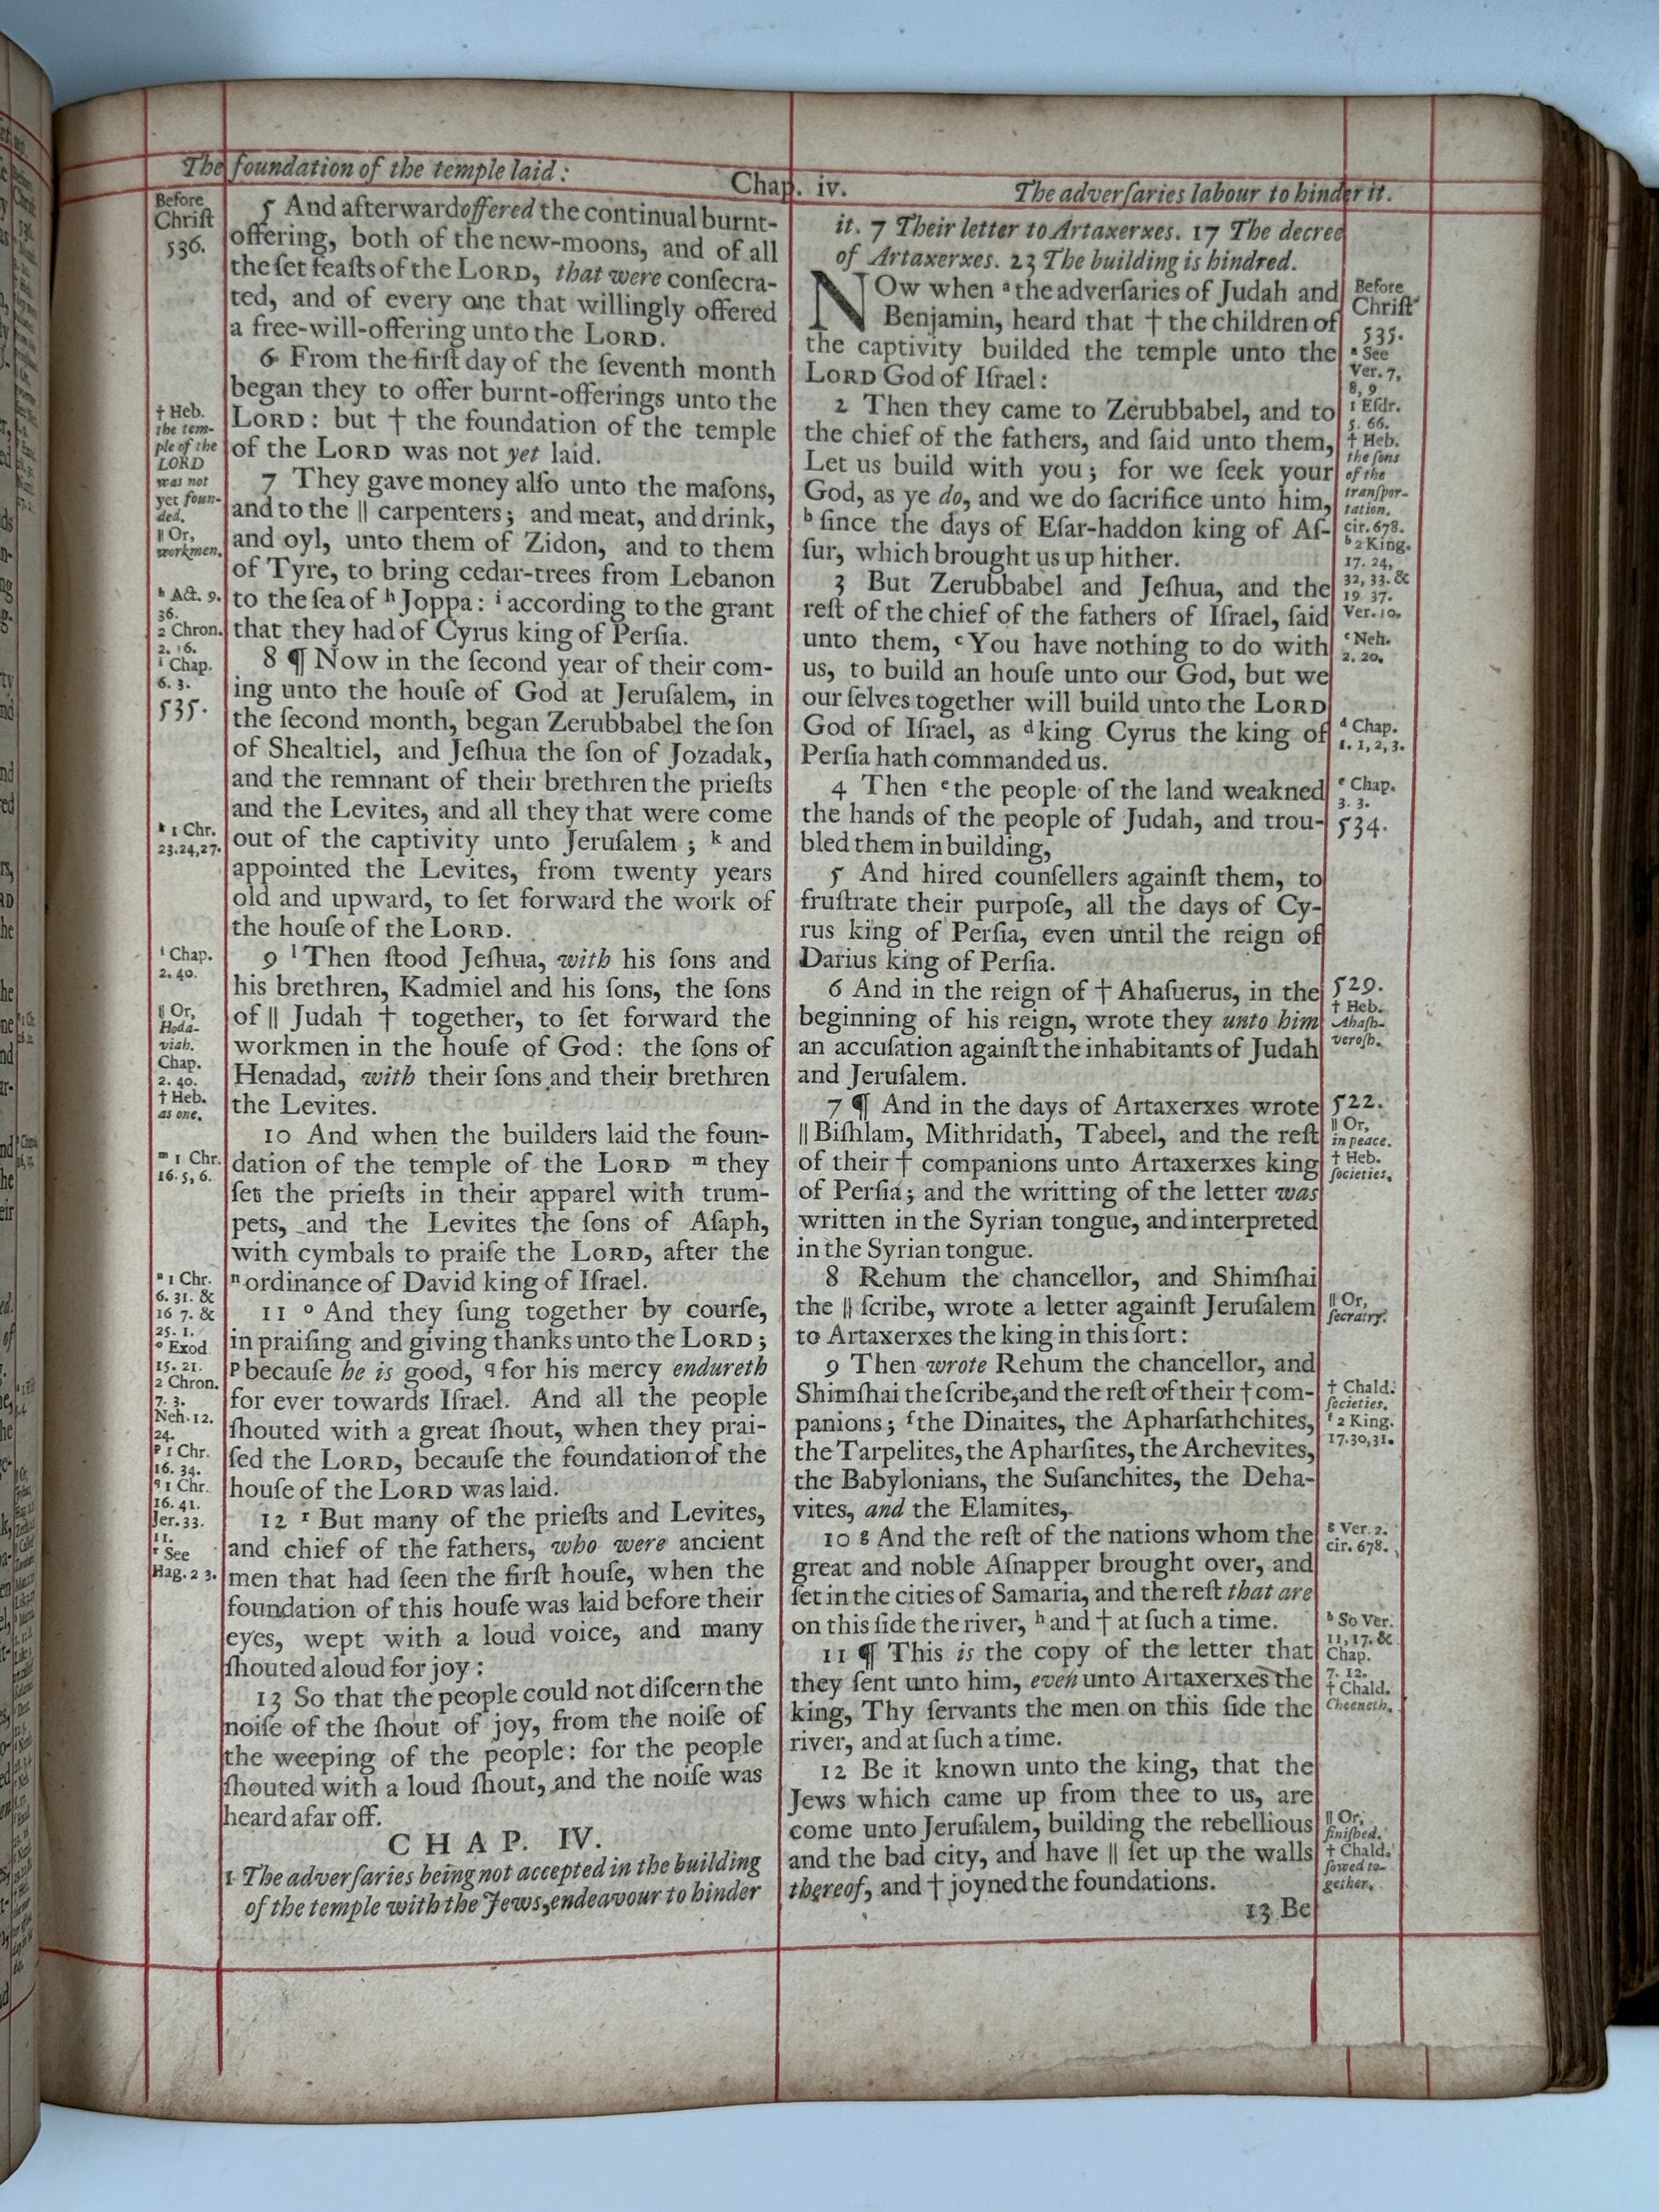 The foundation of the temple laid:
Chap. iv.
The adverſaries labour to hinder it.
Before
Chriſt
536.
† Heb.
the tem-
ple of the
LORD
was not
yet foun-
ded.
‖ Or,
workmen.
h Act. 9.
36.
2 Chron.
2. 16.
i Chap.
6. 3.
535.
k 1 Chr.
23.24,27.
l Chap.
2. 40.
‖ Or,
Hoda-
viah.
Chap.
2. 40.
† Heb.
as one.
m 1 Chr.
16. 5, 6.
n 1 Chr.
6. 31. &
16 7. &
25. 1.
o Exod
15. 21.
2 Chron.
7. 3.
Neh. 12.
24.
p 1 Chr.
16. 34.
q 1 Chr.
16. 41.
Jer. 33.
11.
r See
Hag. 2 3.
5 And afterward offered the continual burnt-
offering, both of the new-moons, and of all
the ſet feaſts of the LORD, that were conſecra-
ted, and of every one that willingly offered
a free-will-offering unto the LORD.
6 From the firſt day of the ſeventh month
began they to offer burnt-offerings unto the
LORD: but † the foundation of the temple
of the LORD was not yet laid.
7 They gave money alſo unto the maſons,
and to the ‖ carpenters; and meat, and drink,
and oyl, unto them of Zidon, and to them
of Tyre, to bring cedar-trees from Lebanon
to the ſea of h Joppa: i according to the grant
that they had of Cyrus king of Perſia.
8 ¶ Now in the ſecond year of their com-
ing unto the houſe of God at Jeruſalem, in
the ſecond month, began Zerubbabel the ſon
of Shealtiel, and Jeſhua the ſon of Jozadak,
and the remnant of their brethren the prieſts
and the Levites, and all they that were come
out of the captivity unto Jeruſalem; k and
appointed the Levites, from twenty years
old and upward, to ſet forward the work of
the houſe of the LORD.
9 l Then ſtood Jeſhua, with his ſons and
his brethren, Kadmiel and his ſons, the ſons
of ‖ Judah † together, to ſet forward the
workmen in the houſe of God: the ſons of
Henadad, with their ſons and their brethren
the Levites.
10 And when the builders laid the foun-
dation of the temple of the LORD m they
ſet the prieſts in their apparel with trum-
pets, and the Levites the ſons of Aſaph,
with cymbals to praiſe the LORD, after the
n ordinance of David king of Iſrael.
11 o And they ſung together by courſe,
in praiſing and giving thanks unto the LORD;
p becauſe he is good, q for his mercy endureth
for ever towards Iſrael. And all the people
ſhouted with a great ſhout, when they prai-
ſed the LORD, becauſe the foundation of the
houſe of the LORD was laid.
12 r But many of the prieſts and Levites,
and chief of the fathers, who were ancient
men that had ſeen the firſt houſe, when the
foundation of this houſe was laid before their
eyes, wept with a loud voice, and many
ſhouted aloud for joy:
13 So that the people could not diſcern the
noiſe of the ſhout of joy, from the noiſe of
the weeping of the people: for the people
ſhouted with a loud ſhout, and the noiſe was
heard afar off.
CHAP. IV.
1 The adverſaries being not accepted in the building
of the temple with the Jews, endeavour to hinder
it. 7 Their letter to Artaxerxes. 17 The decree
of Artaxerxes. 23 The building is hindred.
NOw when a the adverſaries of Judah and
Benjamin, heard that † the children of
the captivity builded the temple unto the
LORD God of Iſrael:
2 Then they came to Zerubbabel, and to
the chief of the fathers, and ſaid unto them,
Let us build with you; for we ſeek your
God, as ye do, and we do ſacrifice unto him,
b ſince the days of Eſar-haddon king of Aſ-
ſur, which brought us up hither.
3 But Zerubbabel and Jeſhua, and the
reſt of the chief of the fathers of Iſrael, ſaid
unto them, c You have nothing to do with
us, to build an houſe unto our God, but we
our ſelves together will build unto the LORD
God of Iſrael, as d king Cyrus the king of
Perſia hath commanded us.
4 Then e the people of the land weakned
the hands of the people of Judah, and trou-
bled them in building,
5 And hired counſellers againſt them, to
fruſtrate their purpoſe, all the days of Cy-
rus king of Perſia, even until the reign of
Darius king of Perſia.
6 And in the reign of † Ahaſuerus, in the
beginning of his reign, wrote they unto him
an accuſation againſt the inhabitants of Judah
and Jeruſalem.
7 ¶ And in the days of Artaxerxes wrote
‖ Biſhlam, Mithridath, Tabeel, and the reſt
of their † companions unto Artaxerxes king
of Perſia; and the writting of the letter was
written in the Syrian tongue, and interpreted
in the Syrian tongue.
8 Rehum the chancellor, and Shimſhai
the ‖ ſcribe, wrote a letter againſt Jeruſalem
to Artaxerxes the king in this ſort:
9 Then wrote Rehum the chancellor, and
Shimſhai the ſcribe, and the reſt of their † com-
panions; f the Dinaites, the Apharſathchites,
the Tarpelites, the Apharſites, the Archevites,
the Babylonians, the Suſanchites, the Deha-
vites, and the Elamites,
10 g And the reſt of the nations whom the
great and noble Aſnapper brought over, and
ſet in the cities of Samaria, and the reſt that are
on this ſide the river, h and † at ſuch a time.
11 ¶ This is the copy of the letter that
they ſent unto him, even unto Artaxerxes the
king, Thy ſervants the men on this ſide the
river, and at ſuch a time.
12 Be it known unto the king, that the
Jews which came up from thee to us, are
come unto Jeruſalem, building the rebellious
and the bad city, and have ‖ ſet up the walls
thereof, and † joyned the foundations.
13 Be
Before
Chriſt
535.
a See
Ver. 7,
8, 9
1 Eſdr.
5. 66.
† Heb.
the ſons
of the
tranſpor-
tation.
cir. 678.
b 2 King.
17. 24,
32, 33. &
19 37.
Ver. 10.
c Neh.
2. 20.
d Chap.
1. 1, 2, 3.
e Chap.
3. 3.
534.
529.
† Heb.
Ahaſh-
veroſh.
522.
‖ Or,
in peace.
† Heb.
ſocieties.
‖ Or,
ſecratry.
† Chald.
ſocieties.
f 2 King.
17.30,31.
g Ver. 2.
cir. 678.
h So Ver.
11, 17. &
Chap.
7. 12.
† Chald.
Cheeneth.
‖ Or,
finiſhed.
† Chald.
ſowed to-
gether.